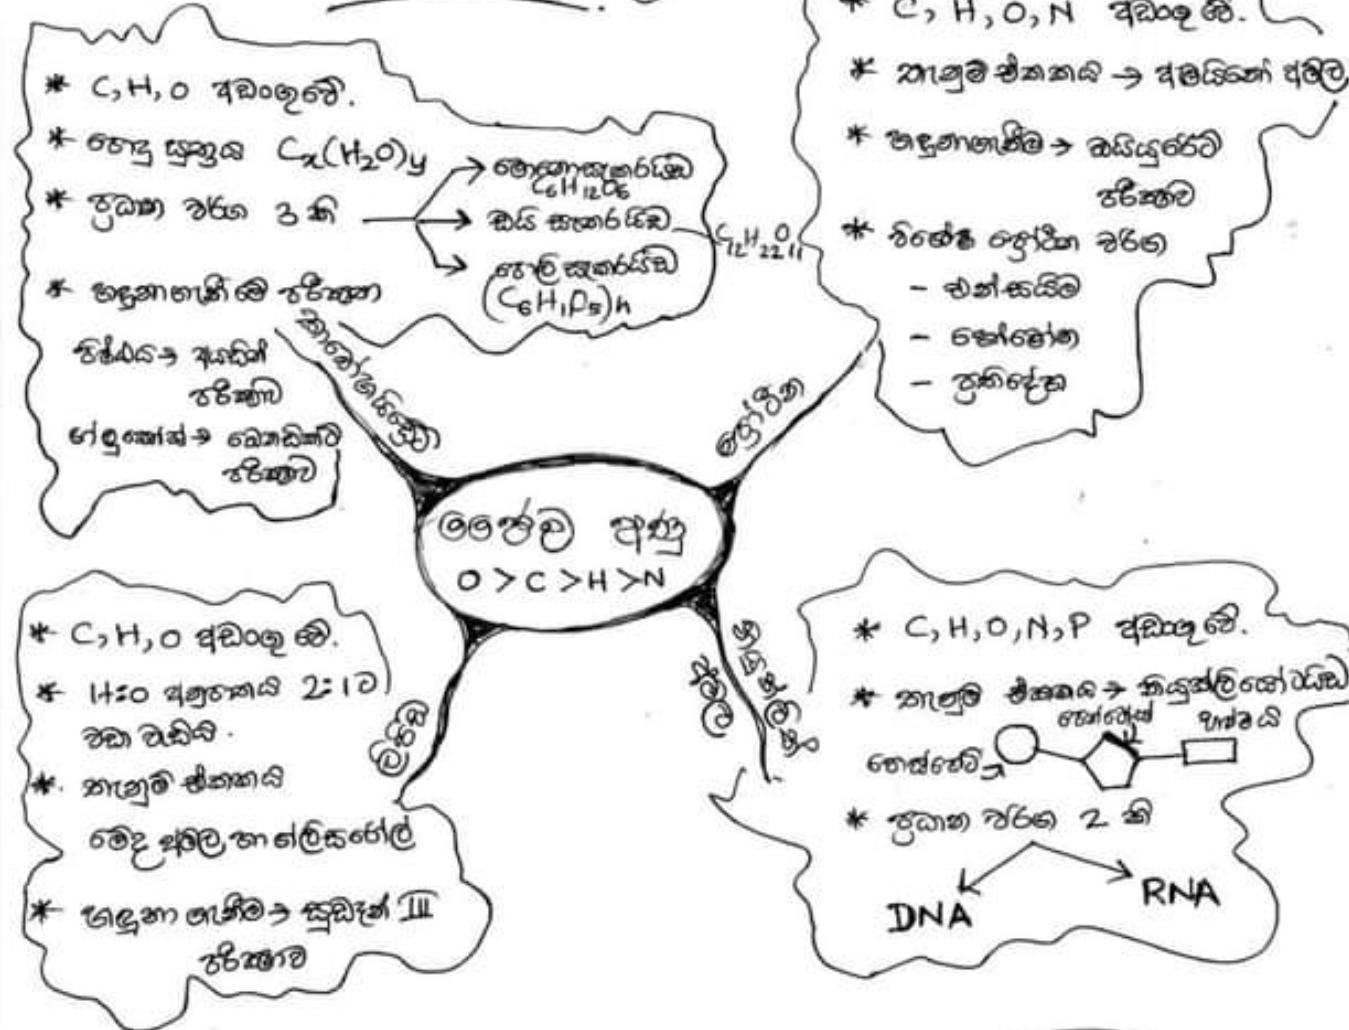 * C, H, O අඩංගු වේ.
* පොදු සූත්‍රය Cx(H2O)y
* ප්‍රධාන වර්ග 3 කි
→ මොනොසැකරයිඩ
C6H12O6
→ ඩයි සැකරයිඩ C12H22O11
→ පොලිසැකරයිඩ
(C6H10O5)n
* හඳුනාගැනීමේ පරීක්ෂා
පිෂ්ඨය → අයඩින්
පරීක්ෂාව
ග්ලූකෝස් → බෙනඩික්ට්
පරීක්ෂාව
කාබෝහයිඩ්‍රේට
* C, H, O, N අඩංගු වේ.
* තැනුම් ඒකකය → අමයිනෝ අම්ල
* හඳුනාගැනීම → බයියුරේට්
පරීක්ෂාව
* විශේෂ ප්‍රෝටීන වර්ග
- එන්සයිම
- හෝමෝන
- ප්‍රතිදේහ
ප්‍රෝටීන
ජෛව අණු
O > C > H > N
* C, H, O අඩංගු වේ.
* H:O අනුපාතය 2:1 ට
වඩා වැඩියි.
* තැනුම් ඒකකය
මේද අම්ල හා ග්ලිසරෝල්
* හඳුනා ගැනීම → සුඩෑන් III
පරීක්ෂාව
ලිපිඩ
න්‍යුක්ලික්
අම්ල
* C, H, O, N, P අඩංගු වේ.
* තැනුම් ඒකකය → නියුක්ලියෝටයිඩ
පෙන්ටෝස් භෂ්මය
පොස්පේට්
* ප්‍රධාන වර්ග 2 කි
DNA RNA